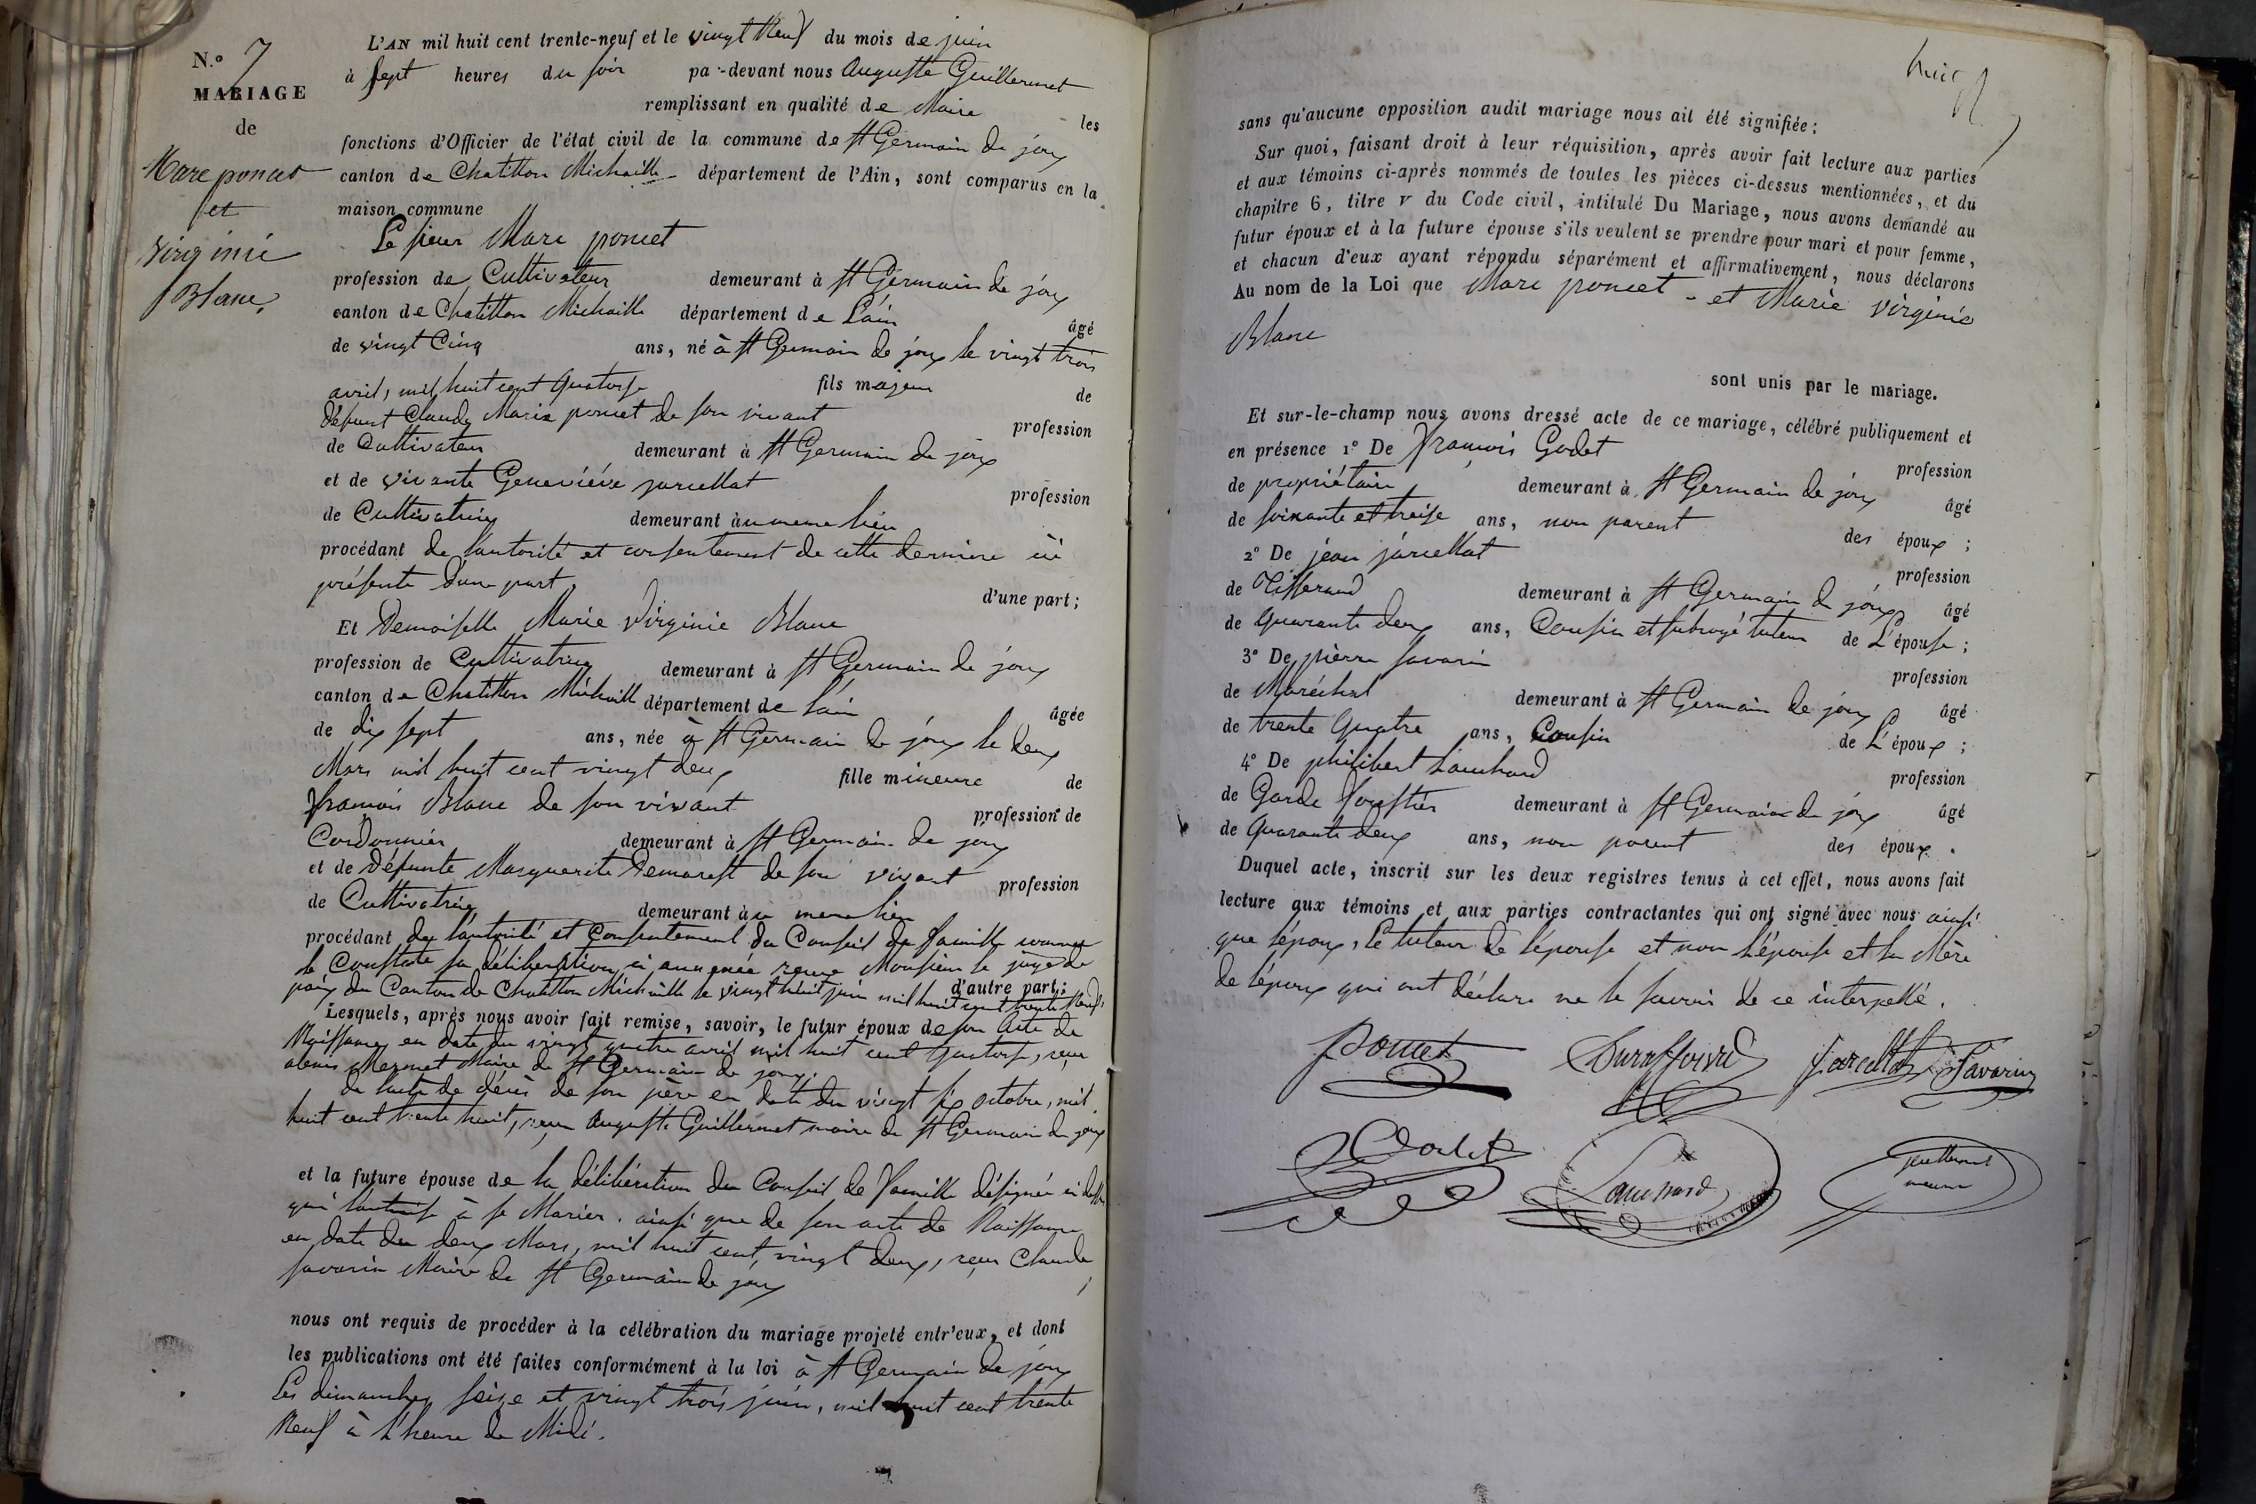 N.º 7
MARIAGE
de
Marc poncet
et
virginie
Blanc,
L'AN mil huit cent trente-neuf et le vingt Neuf du mois de juin
à sept heures du soir pa-devant nous Auguste Guillermet
remplissant en qualité de Maire les
fonctions d'Officier de l'état civil de la commune de St Germain de joux
canton de Chatillon Michaille département de l'Ain, sont comparus en la
maison commune
Le sieur Marc poncet
profession de Cultivateur demeurant à St Germain de joux
canton de Chatillon Michaille département de L'ain âgé
de vingt Cinq ans, né à St Germain de joux le vingt trois
avril, mil huit cent quatorse fils majeur de
défunt Claude Marie poncet de son vivant profession
de Cultivateur demeurant à St Germain de joux
et de vivante Geneviéve jarcellat profession
de Cultivatrice demeurant au meme lieu
procédant de l'autorité et consentement de cette derniere ici
présente d'une part, d'une part;
Et Demoiselle Marie Virginie Blanc
profession de Cultivatrice demeurant à St Germain de joux
canton de Chatillon Michaille département de l'ain âgée
de dix sept ans, née à St Germain de joux le deux
Mars mil huit cent vingt deux fille mineure de
françois Blanc de son vivant profession de
Cordonnier demeurant à St Germain de joux
et de Défunte Marguerite Demarest de son vivant profession
de Cultivatrice demeurant au meme lieu
procédant de l'autorité et Consentement du Conseil de famille comme
le Constate sa déliberation ci annexée reçue Monsieur le juge de
paix du Canton de Chatillon Michaille le vingt huit juin mil huit cent trente Neuf, d'autre part;
Lesquels, après nous avoir fait remise, savoir, le futur époux de son Acte de
Naissance en date du vingt quatre avril mil huit cent quatorse, reçu
Mermet Maire de St Germain de joux.
de l'acte de décès de son père en date du vingt six octobre, mil
huit cent trente huit, reçu Auguste Guillermet maire de St Germain de joux
et la future épouse de la délibération du Conseil de famille désignée ci dessus
qui l'autorise à se Marier. ainsi que de son acte de Naissance
en date du deux Mars, mil huit cent vingt deux, reçu Claude
savarin Maire de St Germain de joux
nous ont requis de procéder à la célébration du mariage projeté entr'eux, et dont
les publications ont été faites conformément à la loi à St Germain de joux
Les dimanches seize et vingt trois juin, mil huit cent trente
Neuf à l'heure de Midi.
huit
sans qu'aucune opposition audit mariage nous ait été signifiée;
Sur quoi, faisant droit à leur réquisition, après avoir fait lecture aux parties
et aux témoins ci-après nommés de toutes les pièces ci-dessus mentionnées, et du
chapitre 6, titre v du Code civil, intitulé Du Mariage, nous avons demandé au
futur époux et à la future épouse s'ils veulent se prendre pour mari et pour femme,
et chacun d'eux ayant répondu séparément et affirmativement, nous déclarons
Au nom de la Loi que Marc poncet - et Marie virginie
Blanc
sont unis par le mariage.
Et sur-le-champ nous avons dressé acte de ce mariage, célébré publiquement et
en présence 1º De françois Godet profession
de propriétaire demeurant à St Germain de joux âgé
de soixante et treise ans, non parent des époux;
2º De jéan jarcellat profession
de Tisserand demeurant à St Germain de joux âgé
de quarante deux ans, Cousin et subrogé tuteur de L'épouse;
3º De pierre savarin profession
de Maréchal demeurant à St Germain de joux âgé
de trente Quatre ans, Cousin de L'époux;
4º De philibert Lauchard profession
de Garde Forestier demeurant à St Germain de joux âgé
de Quarante deux ans, non parent des époux.
Duquel acte, inscrit sur les deux registres tenus à cet effet, nous avons fait
lecture aux témoins et aux parties contractantes qui ont signé avec nous ainsi
que l'époux, le tuteur de l'épouse et non l'épouse et la Mère
de l'époux qui ont déclaré ne le savoir de ce interpellé.
Poncet
Jarcellat
Savarin
Godet
guillermet
maire